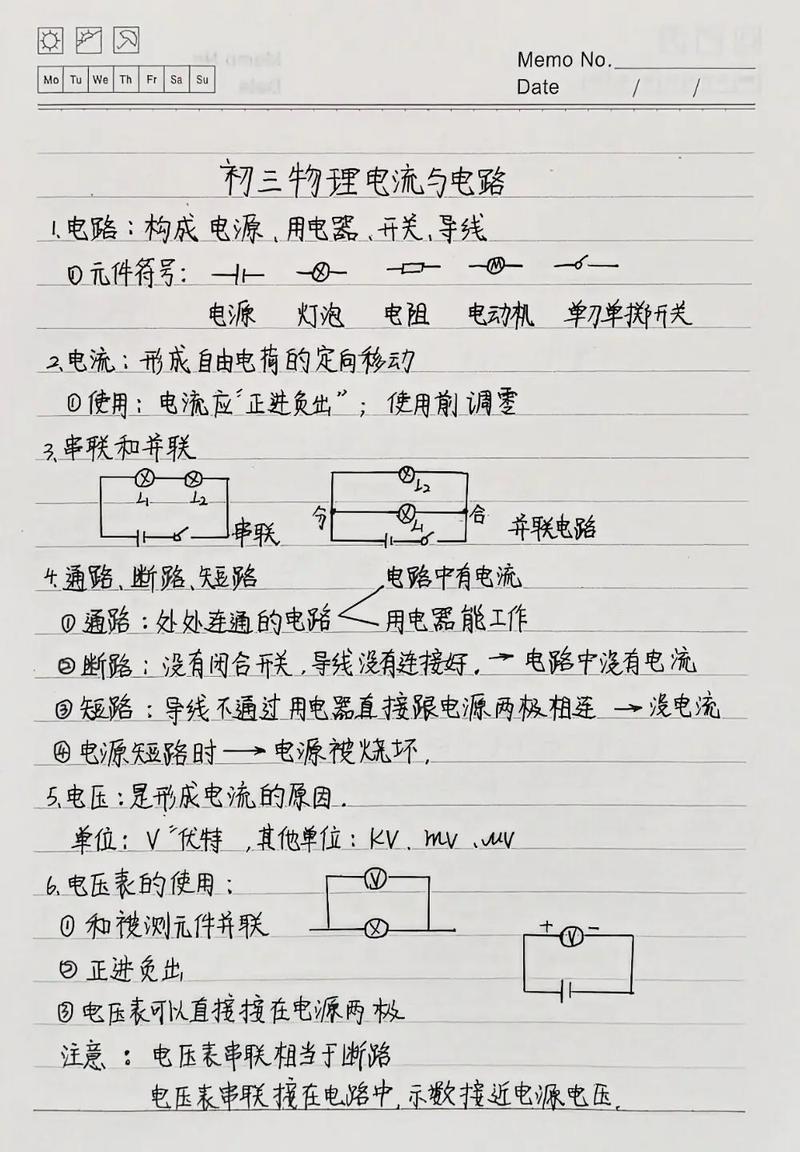 Mo Tu We Th Fr Sa Su
Memo No.
Date / /
初三物理电流与电路
1.电路：构成 电源、用电器、开关、导线
①元件符号：
M
电源 灯泡 电阻 电动机 单刀单掷开关
2.电流：形成自由电荷的定向移动
①使用：电流应“正进负出”；使用前调零
3.串联和并联
L1 L2 串联
L2
分 L1 合 并联电路
4.通路、断路、短路 电路中有电流
①通路：处处连通的电路 用电器能工作
②断路：没有闭合开关,导线没有连接好.→电路中没有电流
③短路：导线不通过用电器直接跟电源两极相连→没电流
④电源短路时→电源被烧坏,
5.电压：是形成电流的原因.
单位：V “伏特,其他单位：KV、mV、μV
6.电压表的使用：
V
①和被测元件并联
+ V -
②正进负出
③电压表可以直接接在电源两极
注意：电压表串联相当于断路
电压表串联接在电路中,示数接近电源电压.